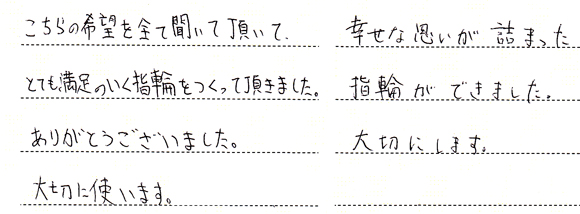 こちらの希望を全て聞いて頂いて、
とても満足のいく指輪をつくって頂きました。
ありがとうございました。
大切に使います。
幸せな思いが詰まった
指輪ができました。
大切にします。